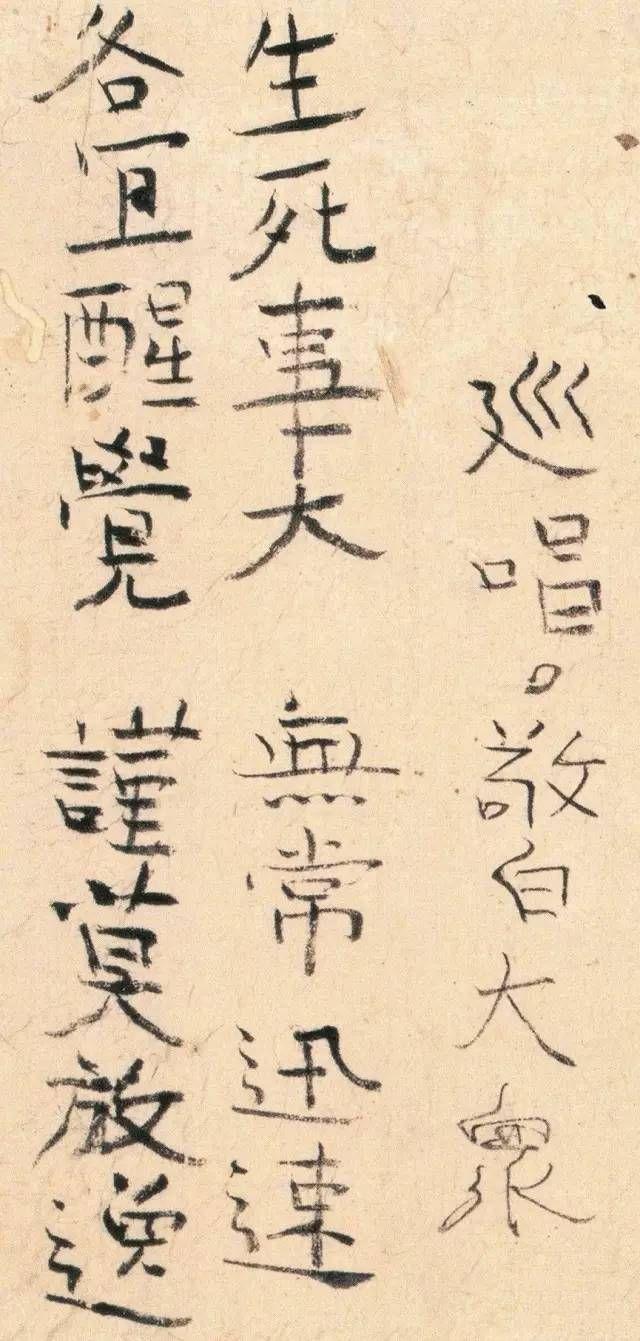 巡唱。敬白大衆
生死事大 無常迅速
各宜醒覺 謹莫放逸